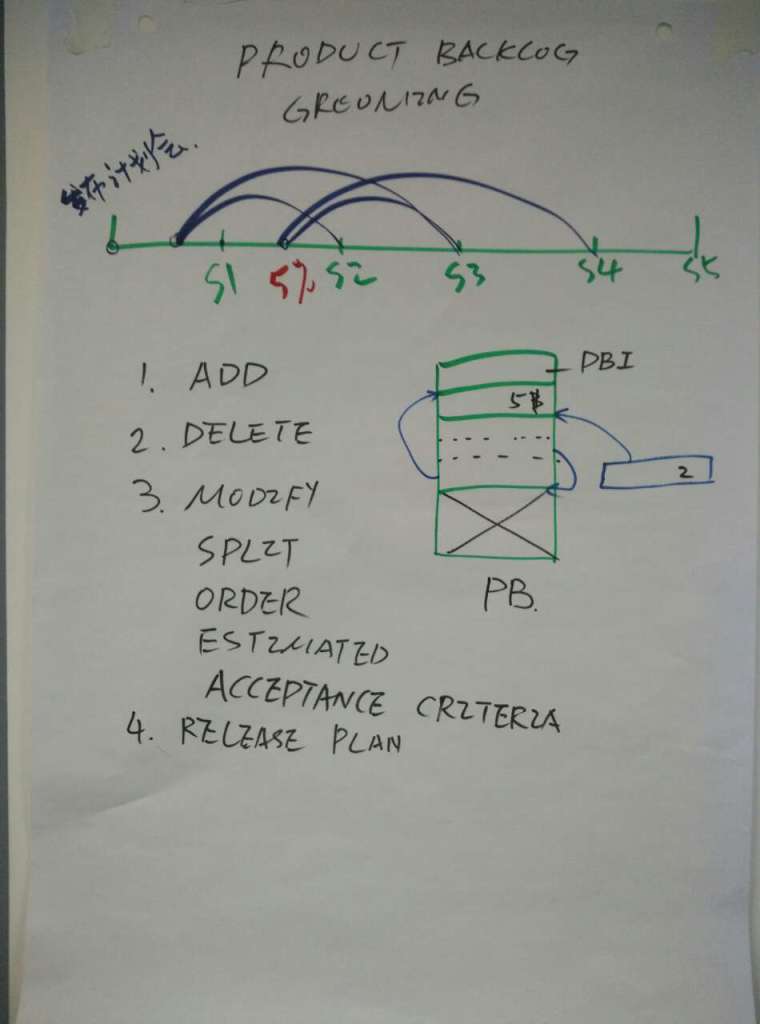 PRODUCT BACKLOG
GREOMING
发布计划会.
S1 5% S2 S3 S4 S5
1. ADD
2. DELETE
3. MODIFY
SPLIT
ORDER
ESTIMATED
ACCEPTANCE CRITERIA
4. RELEASE PLAN
PBI
5
2
PB.